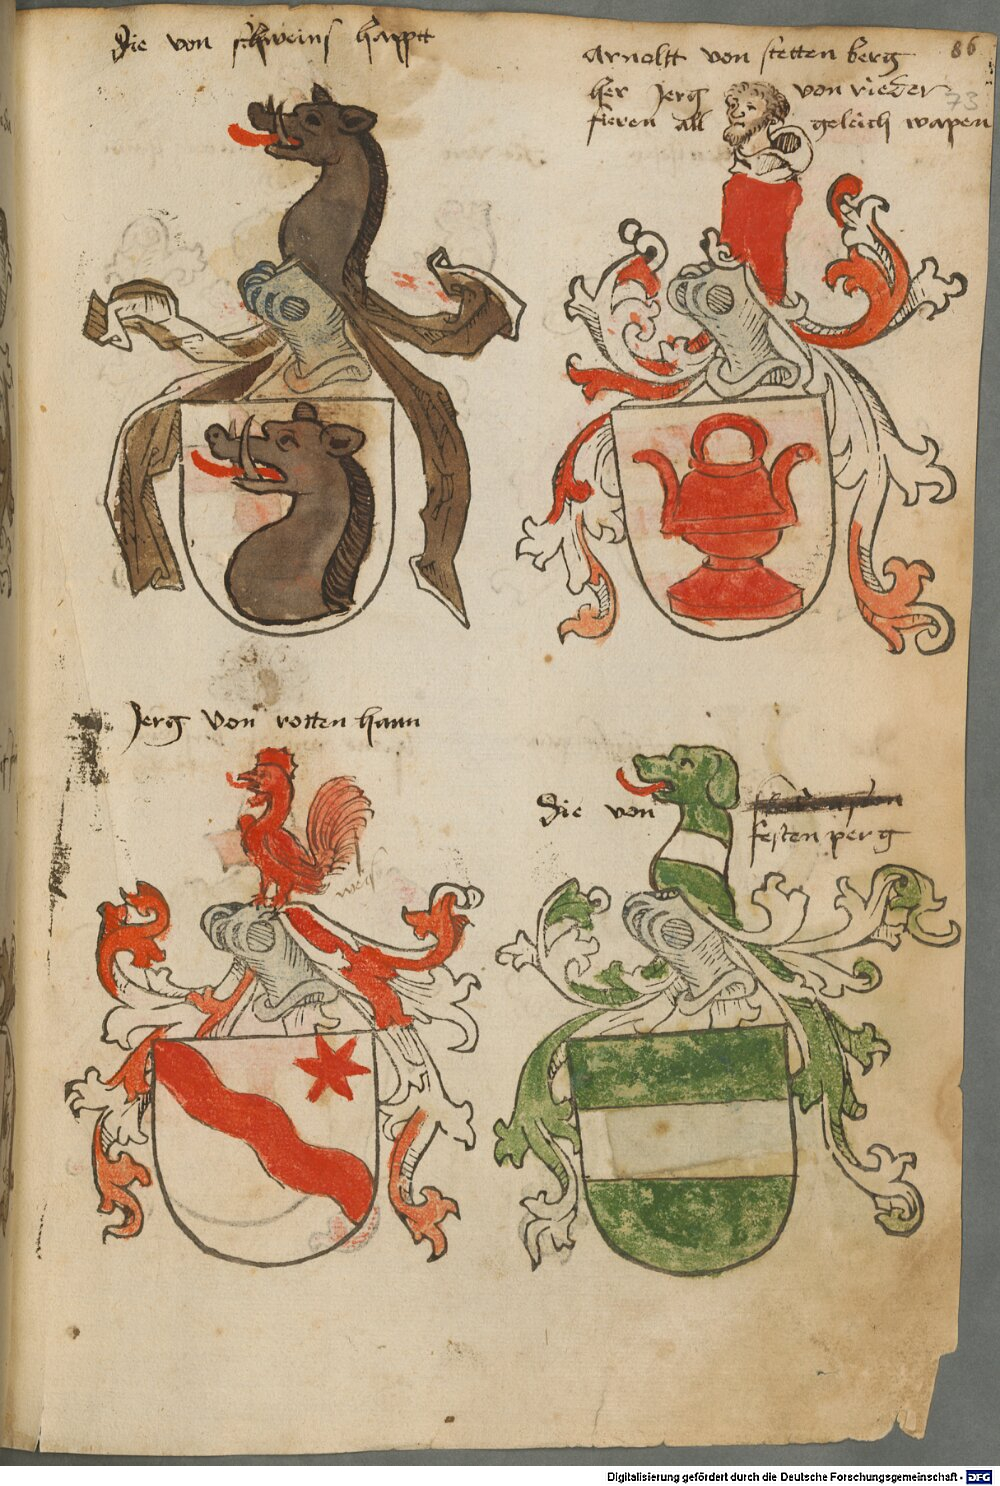 Die von schweins happt
Arnoltt von stetten berg
her Jerg von rieder
fieren all geleich wapen
86
73
Jerg von rotten hann
weiß
Die von
festen perg
Digitalisierung gefördert durch die Deutsche Forschungsgemeinschaft - DFG